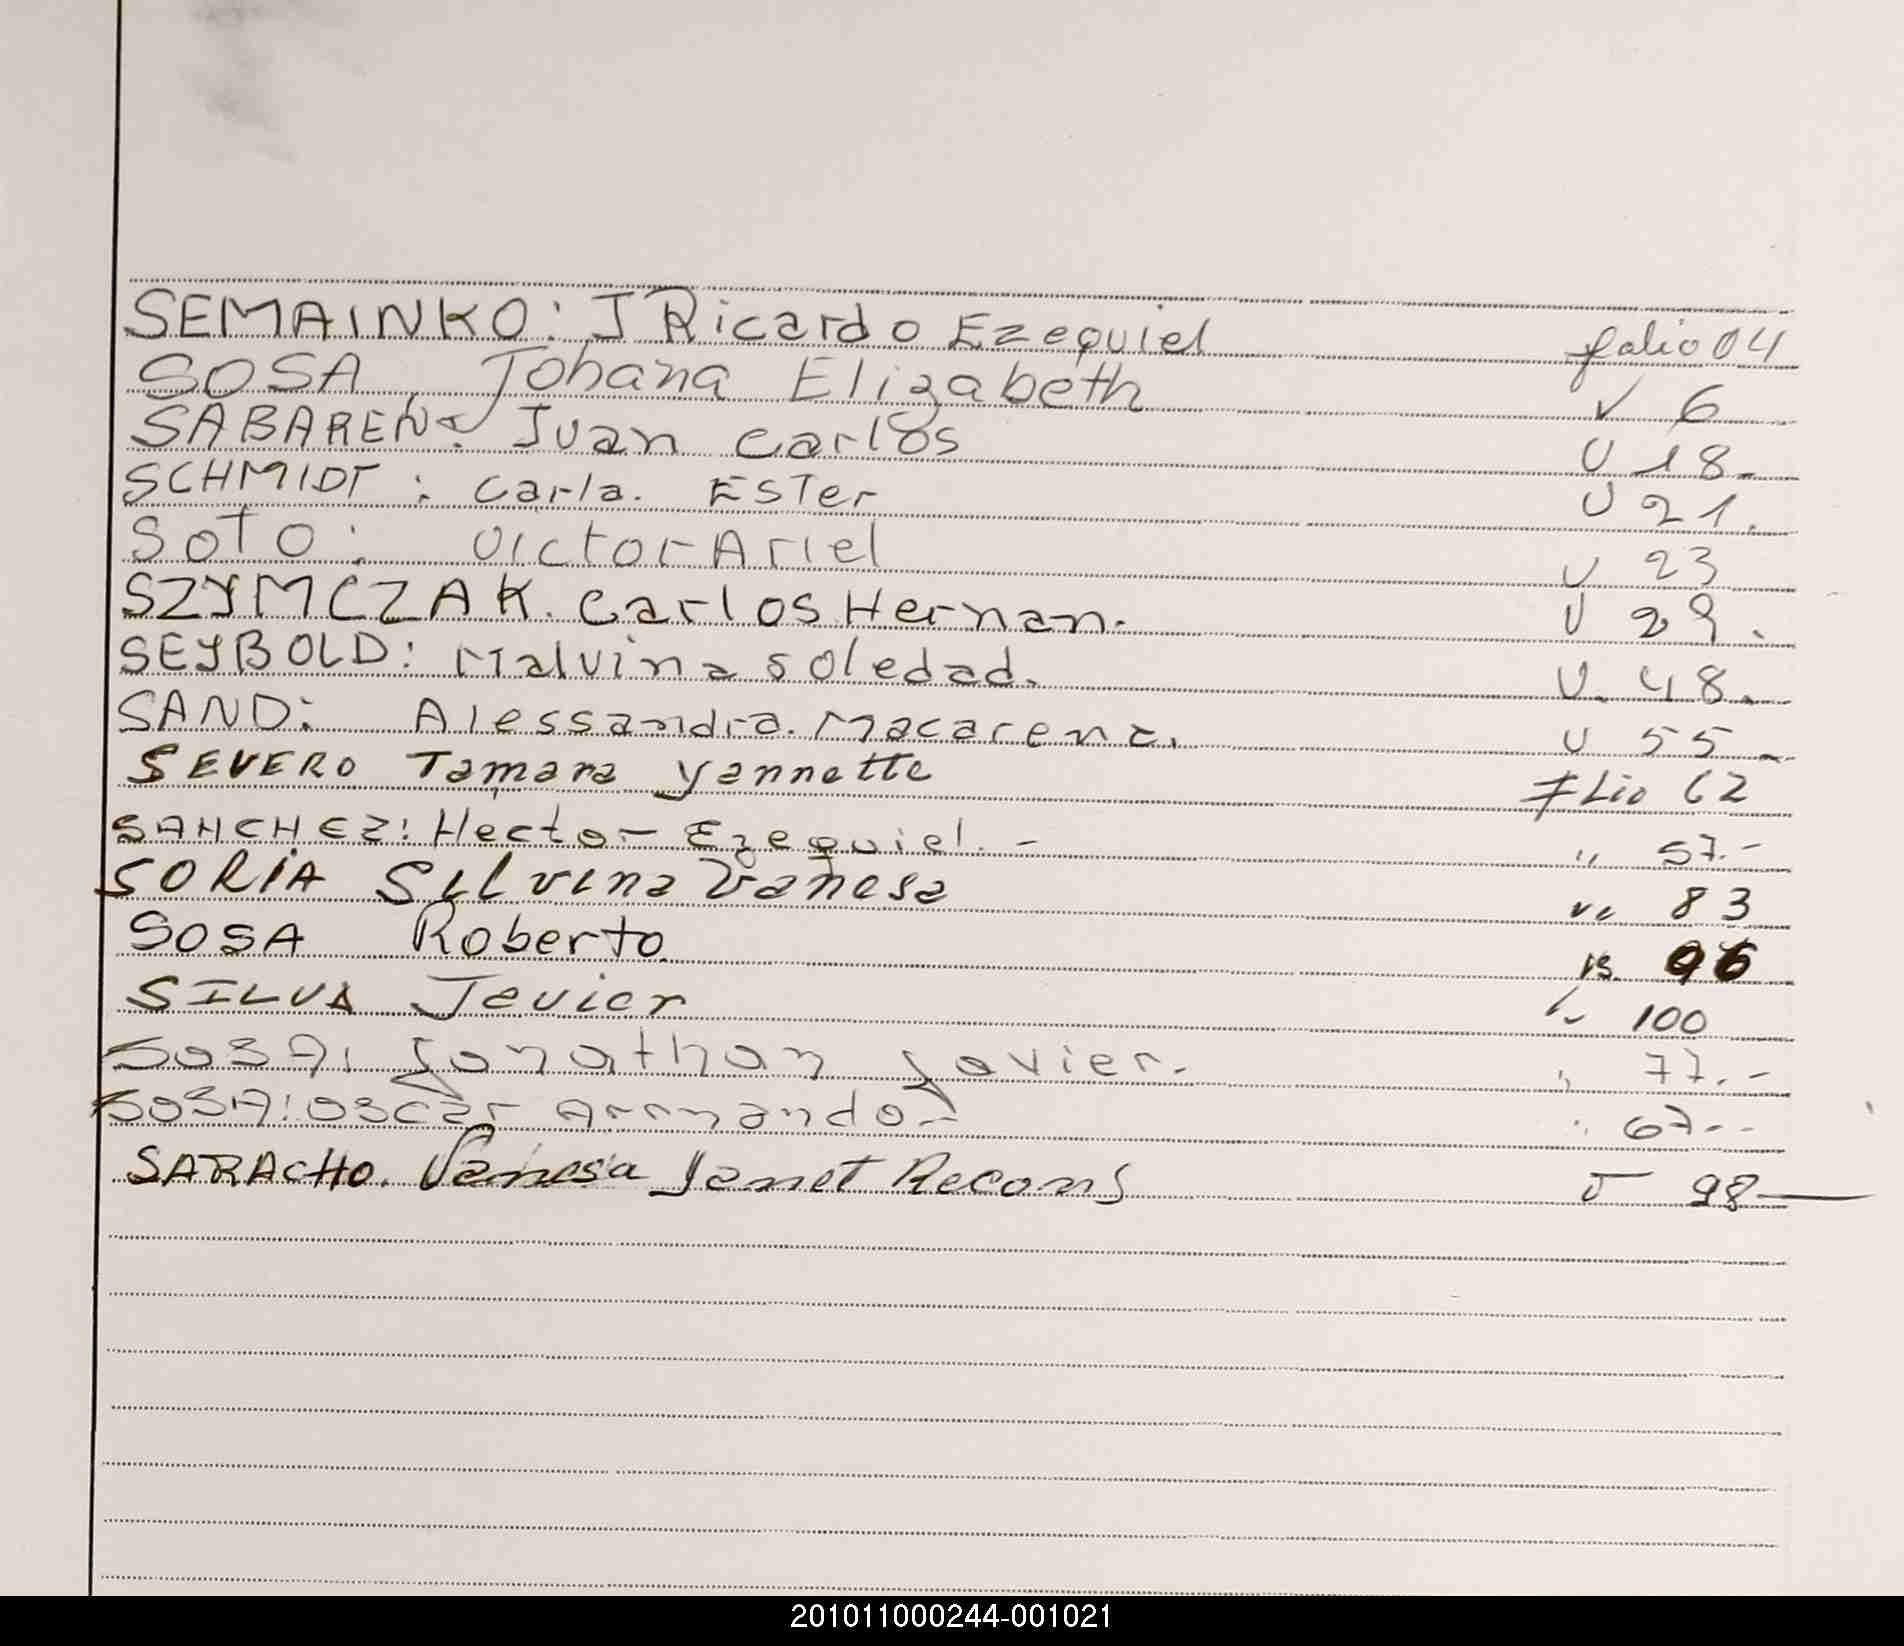 SEMAINKO: J Ricardo Ezequiel folio 04
SOSA, Johana Elizabeth v 6
SABAREN. Juan Carlos U 18-
SCHMIDT: Carla. Ester U 21.
SOTO: Victor Ariel U 23
SZYMCZAK. Carlos Hernan. U 29.
SEYBOLD: Malvina Soledad. U. 48.
SAND: Alessandra. Macarena. U 55-
SEVERO Tamara Yannette 62
SANCHEZ: Hector Ezequiel. - " 57.-
SORIA Silvina Vanesa " 83
SOSA Roberto 96
SILVA Javier 100
SOSA: Jonathan Javier. " 77.-
SOSA: Oscar Armando- " 67--
SARACHO. Vanesa Yanet Recons 98-
201011000244-001021